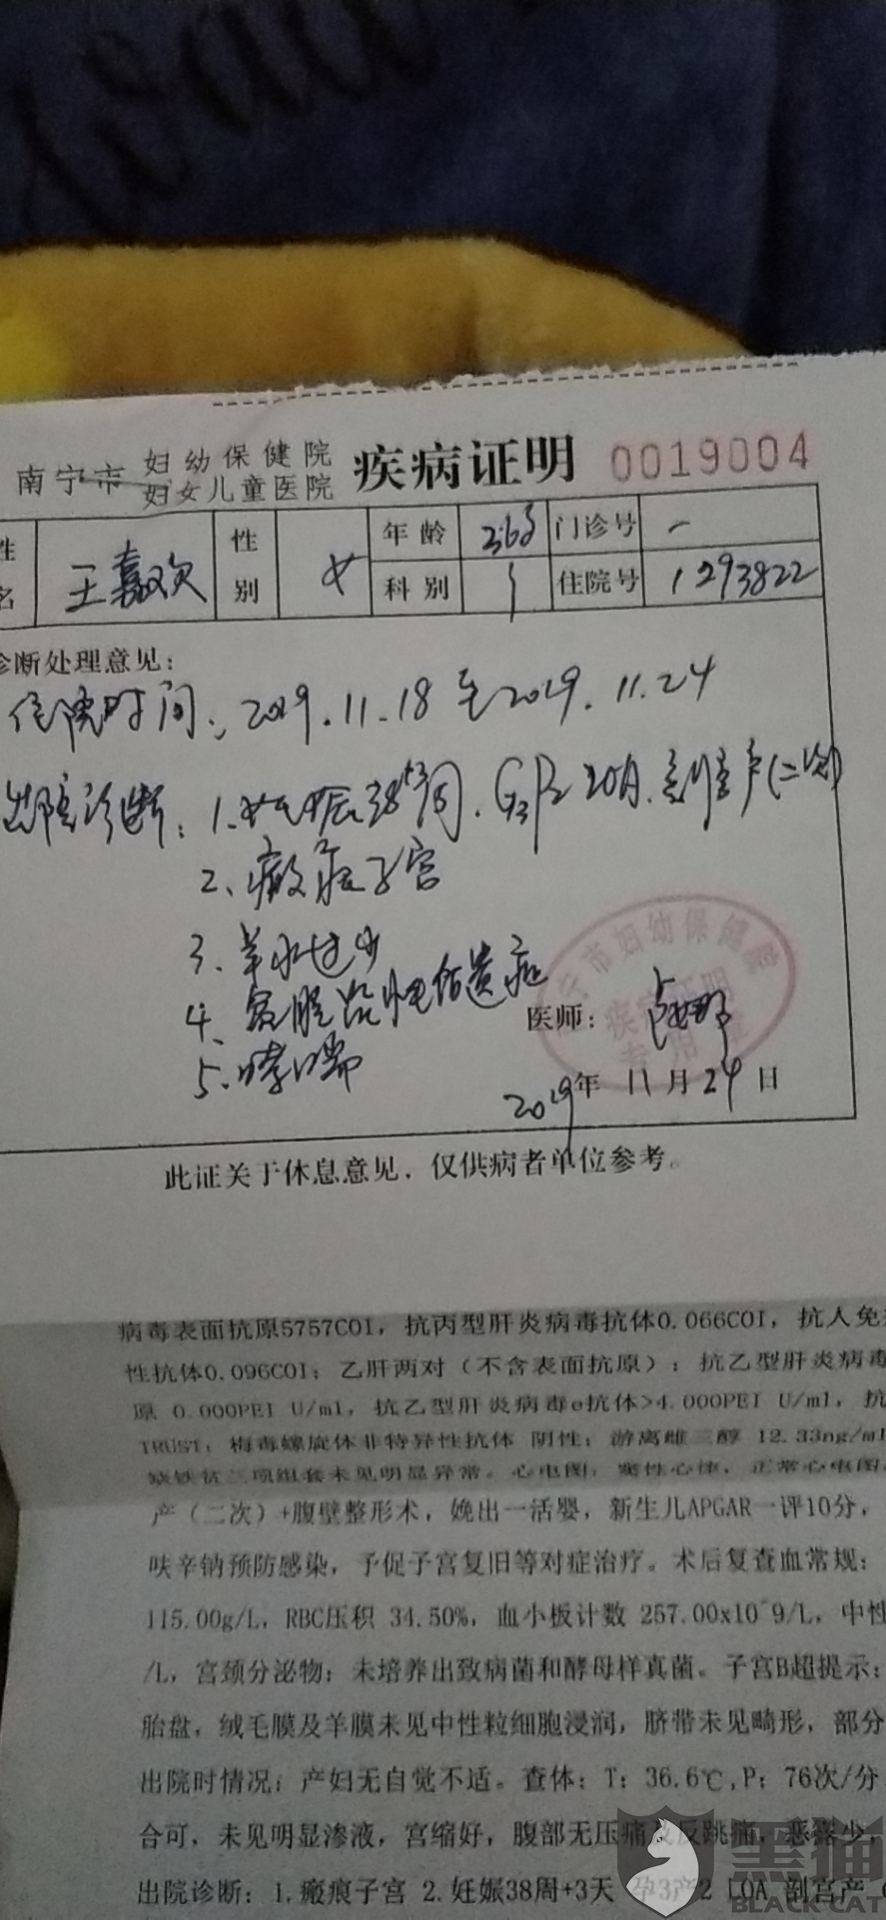 南宁市 妇幼保健院 疾病证明 0019004
妇女儿童医院
姓名 王嘉欢 性别 女 年龄 36岁 门诊号 一
科别 住院号 1293822
诊断处理意见:
住院时间: 2019.11.18至2019.11.24
出院诊断: 1.妊娠38+3周. G3P2 LOA. 剖宫产(二次)
2、瘢痕子宫
3、羊水过少
4、盆腔
遗症
5、哮喘
医师:
南宁市妇幼保健院
疾病证明
专用章
2019年 11月24日
此证关于休息意见，仅供病者单位参考。
病毒表面抗原5757COI，抗丙型肝炎病毒抗体0.066COI，抗人免疫
性抗体0.096COI；乙肝两对（不含表面抗原）：抗乙型肝炎病毒
原 0.000PEI U/ml，抗乙型肝炎病毒e抗体>4.000PEI U/ml，抗
TRUST：梅毒螺旋体非特异性抗体 阴性；游离雌三醇 12.33ng/ml
缺铁贫三项组套未见明显异常。心电图：窦性心律，正常心电图
产（二次）+腹壁整形术，娩出一活婴，新生儿APGAR一评10分，
呋辛钠预防感染，予促子宫复旧等对症治疗。术后复查血常规：
115.00g/L，RBC压积 34.50%，血小板计数 257.00x10^9/L，中性
/L，宫颈分泌物：未培养出致病菌和酵母样真菌。子宫B超提示：
胎盘，绒毛膜及羊膜未见中性粒细胞浸润，脐带未见畸形，部分
出院时情况：产妇无自觉不适。查体：T：36.6℃,P：76次/分
合可，未见明显渗液，宫缩好，腹部无压痛及反跳痛，恶露少，
出院诊断：1.瘢痕子宫 2.妊娠38周+3天 孕3产2 LOA 剖宫产
黑猫
BLACK CAT